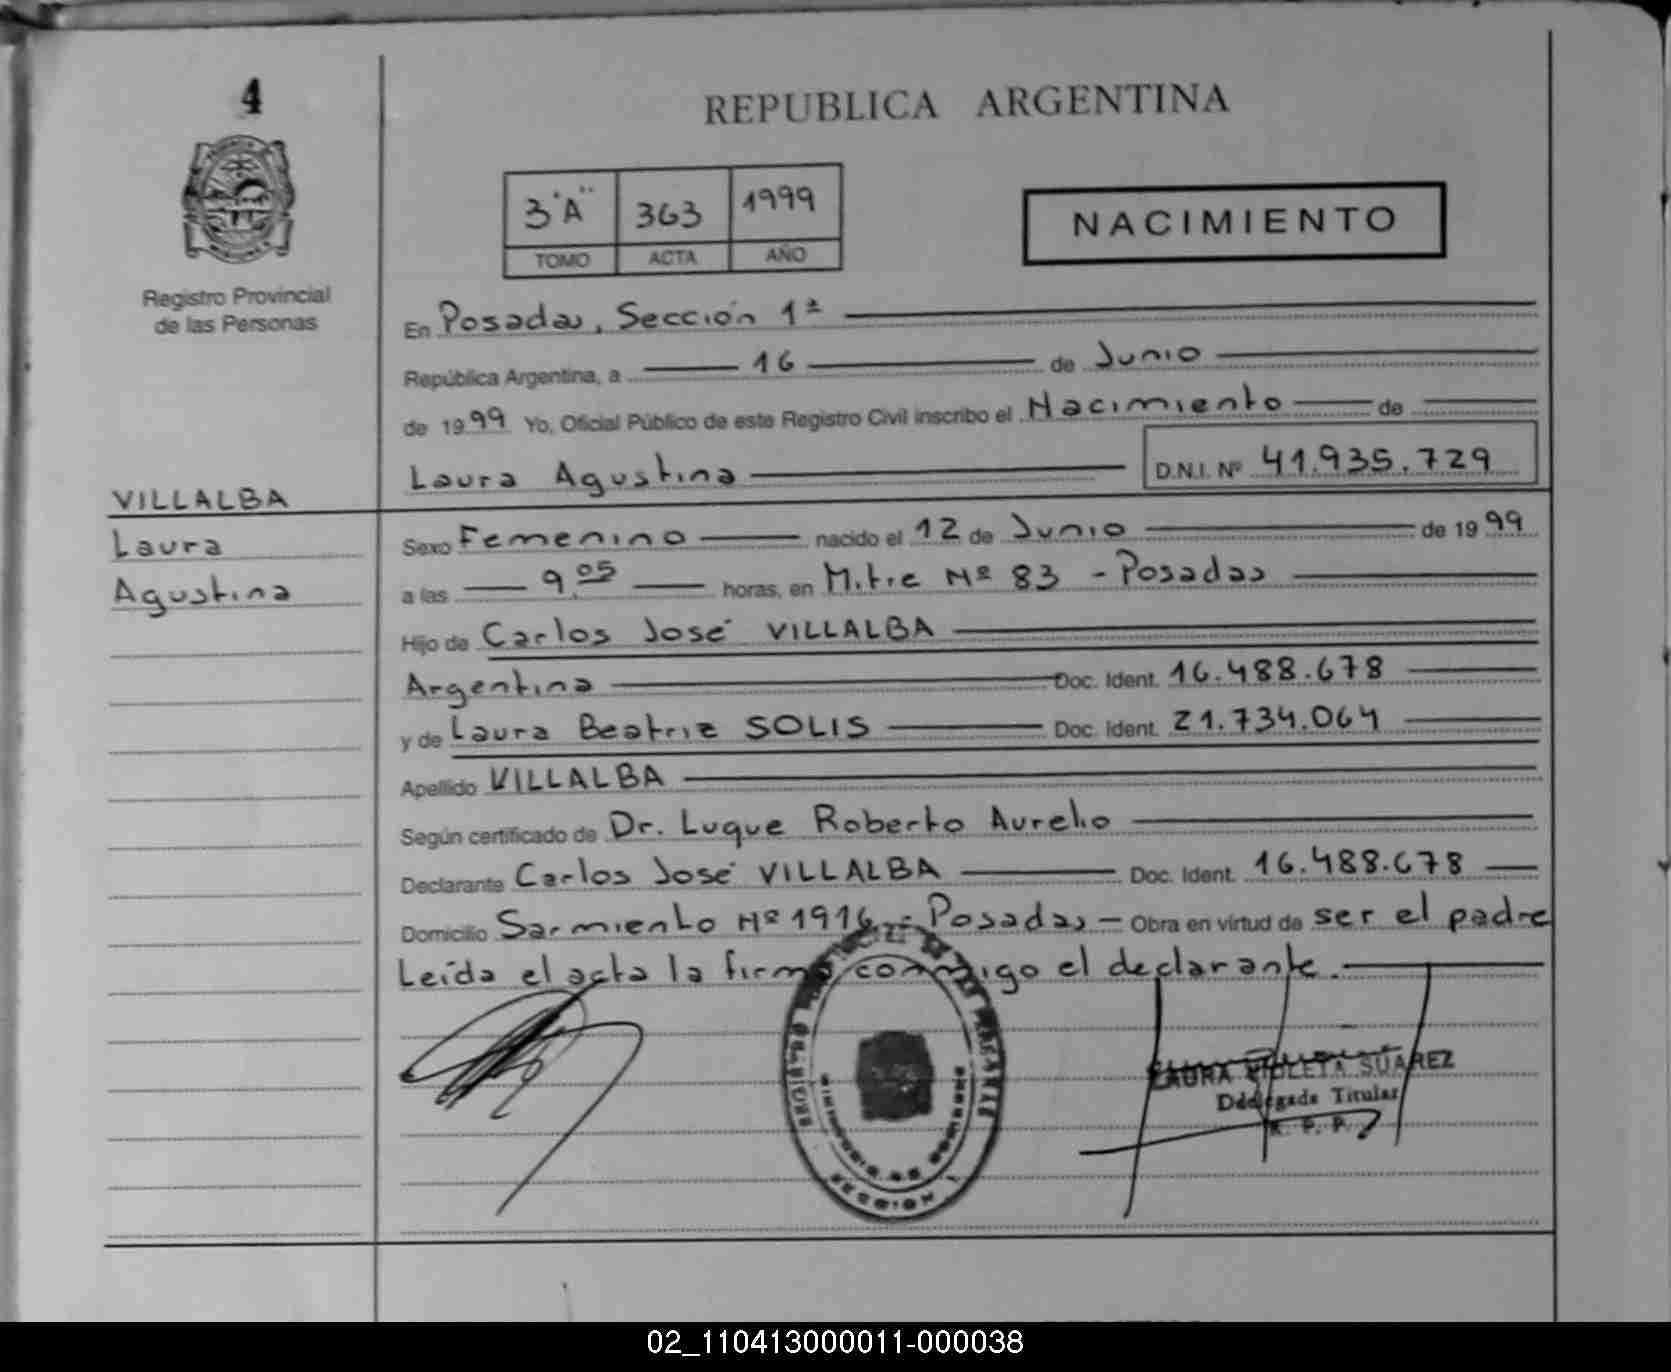 4
REPUBLICA ARGENTINA
3 "A" 363 1999
TOMO ACTA AÑO
NACIMIENTO
Registro Provincial
de las Personas
En Posadas, Sección 1ª
República Argentina, a 16 de Junio
de 1999 Yo, Oficial Público de este Registro Civil inscribo el Nacimiento de
Laura Agustina D.N.I. Nº 41.935.729
VILLALBA
Laura
Agustina
Sexo Femenino nacido el 12 de Junio de 1999
a las 9,05 horas, en Mitre Nº 83 - Posadas
Hijo de Carlos José VILLALBA
Argentina Doc. Ident. 16.488.678
y de Laura Beatriz SOLIS Doc. Ident. 21.734.064
Apellido VILLALBA
Según certificado de Dr. Luque Roberto Aurelio
Declarante Carlos José VILLALBA Doc. Ident. 16.488.678
Domicilio Sarmiento Nº 1916 - Posadas - Obra en virtud de ser el padre
Leída el acta la firma conmigo el declarante.
LAURA VIOLETA SUAREZ
Delegada Titular
R. P. P.
SECCION 1
02_110413000011-000038